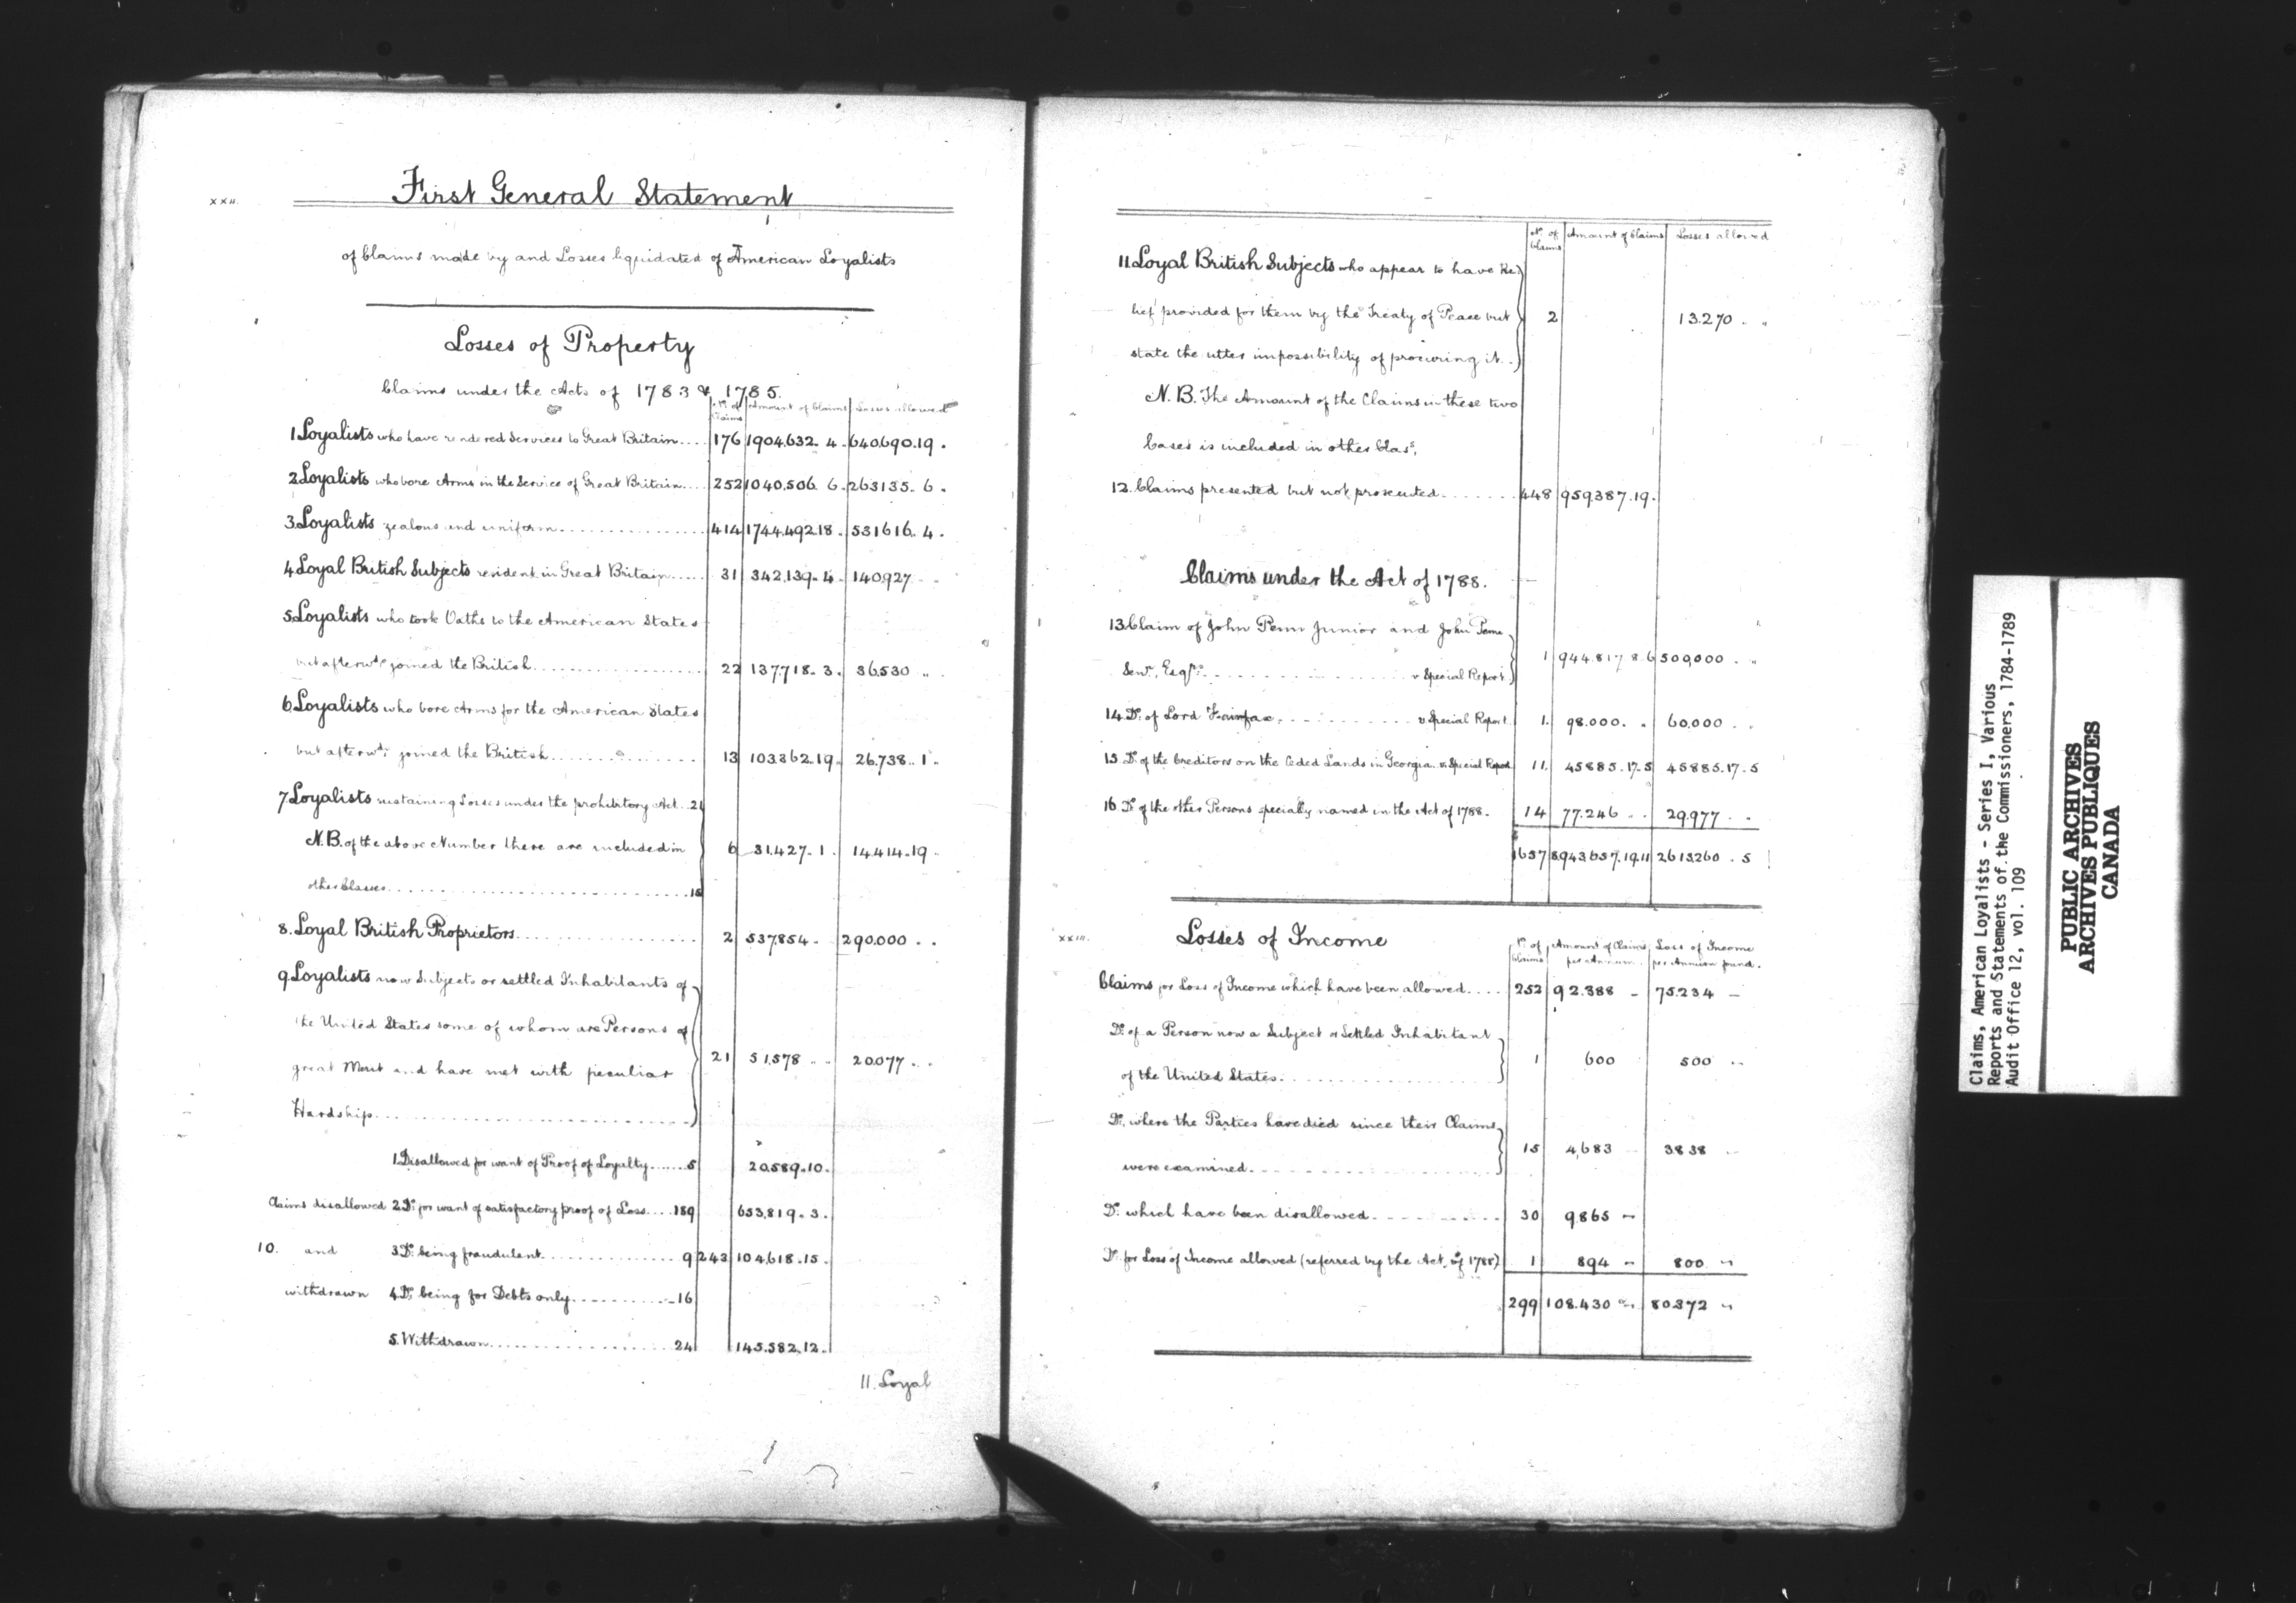 xxii. First General Statement
of Claims made by and Losses liquidated of American Loyalists
Losses of Property
Claims under the Acts of 1783 & 1785.
No. of Claims Amount of Claims Losses allowed
1 Loyalists who have rendered Services to Great Britain.... 176 1904,632. 4. 640,690.19.
2 Loyalists who bore Arms in the Service of Great Britain.... 252 1040,506. 6. 263135. 6.
3 Loyalists zealous and uniform.... 414 1744,492.18. 531616. 4.
4 Loyal British Subjects resident in Great Britain.... 31 342,139. 4. 140,927
5 Loyalists who took Oaths to the American States
but afterwds. joined the British.... 22 137,718. 3. 36,530 ..
6 Loyalists who bore Arms for the American States
but afterwds. joined the British.... 13 103,362.19. 26,738. 1.
7 Loyalists sustaining Losses under the prohibitory Act.. 21
N.B. of the above Number there are included in 6 31,427. 1. 14,414.19.
other Classes.... 15
8. Loyal British Proprietors.... 2 537,854. 290,000 ..
9 Loyalists now Subjects or settled Inhabitants of
the United States some of whom are Persons of
great Merit and have met with peculiar 21 51,578 .. 20,077 ..
Hardship....
1. Disallowed for want of Proof of Loyalty.... 5 20,589.10.
Claims disallowed 2 Do. for want of satisfactory proof of Loss.... 189 653,819. 3.
10. and 3 Do. being fraudulent.... 9 243 104,618.15.
withdrawn 4 Do. being for Debts only.... 16
5. Withdrawn.... 24 145,582.12.
11. Loyal
No. of Claims Amount of Claims Losses allowed
11 Loyal British Subjects who appear to have Re
lief provided for them by the Treaty of Peace but 2 13.270 . "
state the utter impossibility of procuring it.
N.B. The Amount of the Claims in these two
Cases is included in other Class,
12. Claims presented but not prosecuted.... 448 959,387.19.
Claims under the Act of 1788.
13. Claim of John Penn Junior and John Penn
Senr., Esqrs. .... v Special Report. 1 944,817 8.6 500,000 . "
14. Do. of Lord Fairfax.... v Special Report 1. 98.000. . 60,000 ..
15. Do. of the Creditors on the Ceded Lands in Georgia v. Special Report 11. 45885.17.5 45885.17.5
16. Do. of the other Persons specially named in the Act of 1788. 14 77.246 .. 29,977 ..
1657 8,943,657.19.11 2613260 . 5
xxiii. Losses of Income
No. of Claims Amount of Claims per Annum. Loss of Income per Annum found.
Claims for Loss of Income which have been allowed.... 252 92.388 - 75.234 -
Do. of a Person now a Subject or Settled Inhabitant
of the United States.... 1 600 500 ..
Do., where the Parties have died since their Claims
were examined.... 15 4,683 3838 ..
Do. which have been disallowed.... 30 9,865 "
Do. for Loss of Income allowed (referred by the Act of 1788) 1 894 " 800 "
299 108.430 " 80372 "
Claims, American Loyalists - Series I, Various
Reports and Statements of the Commissioners, 1784-1789
Audit Office 12, vol. 109
PUBLIC ARCHIVES
ARCHIVES PUBLIQUES
CANADA